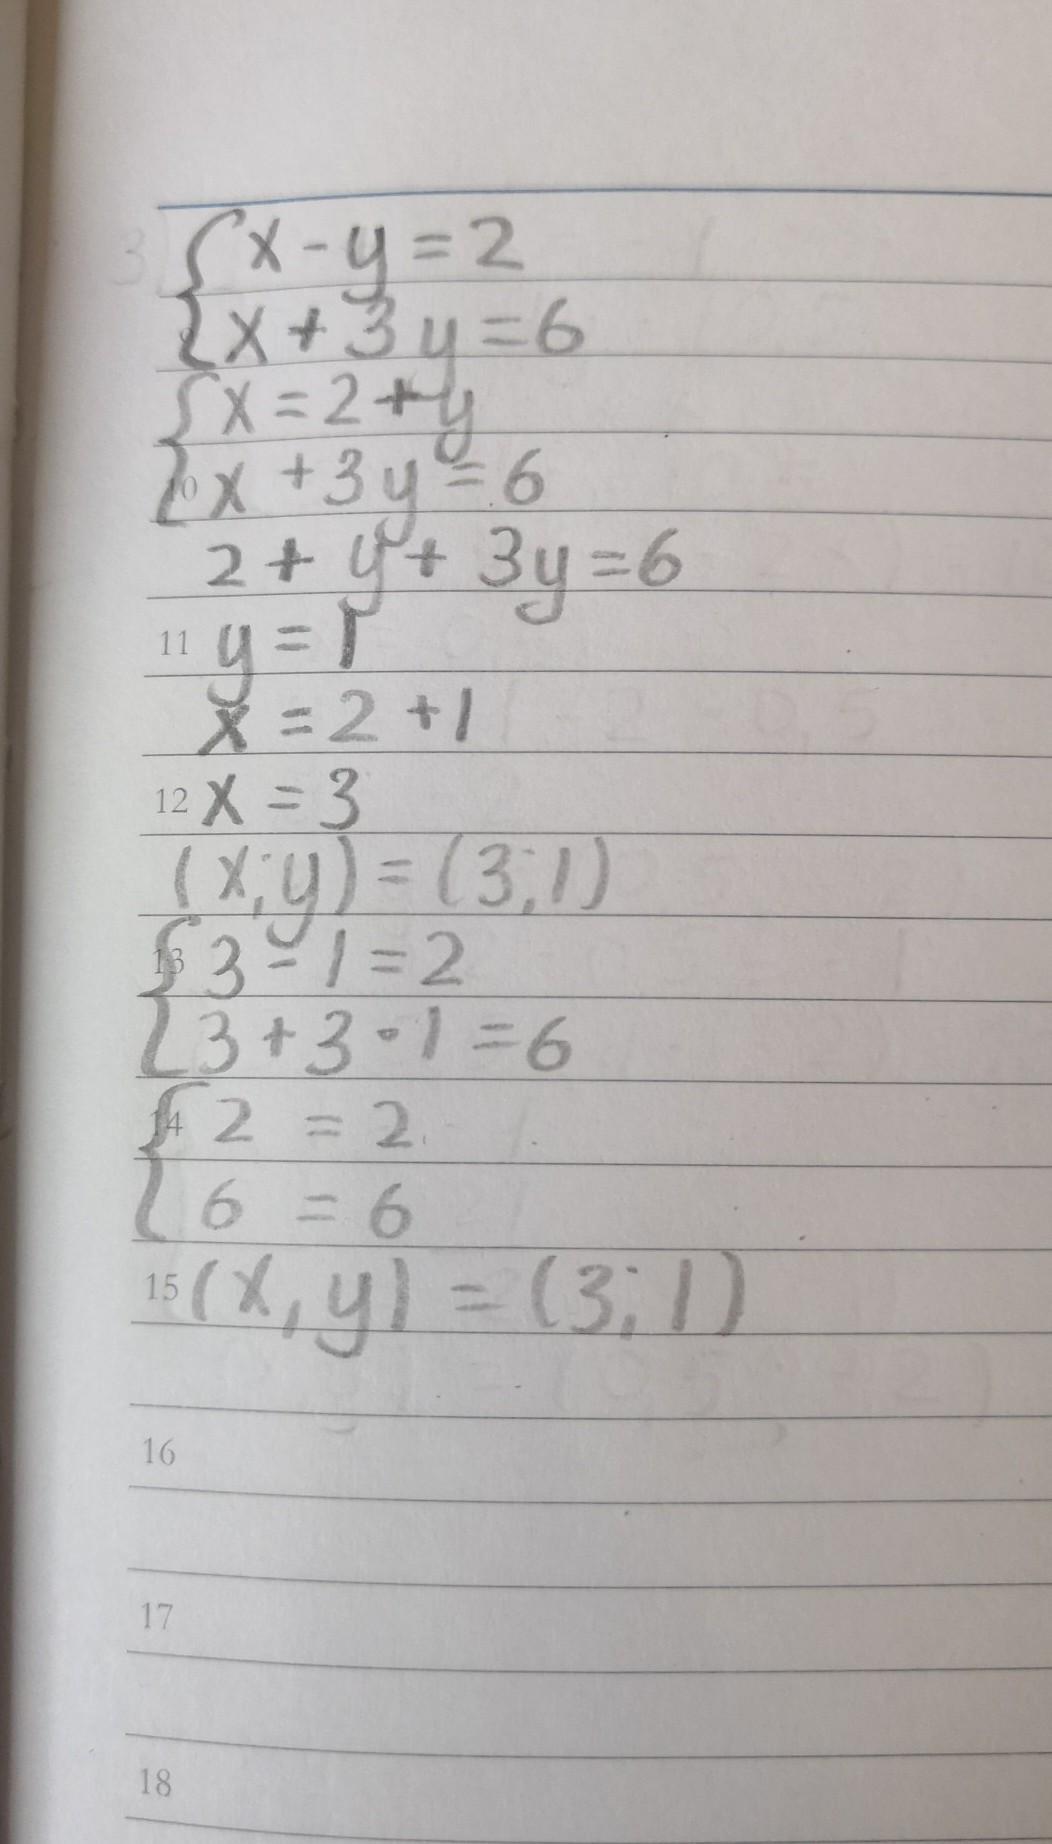 3) x - y = 2
9 x + 3y = 6
x = 2 + y
10 x + 3y = 6
2 + y + 3y = 6
11 y = 1
x = 2 + 1
12 x = 3
(x; y) = (3; 1)
13 3 - 1 = 2
3 + 3 · 1 = 6
14 2 = 2
6 = 6
15 (x, y) = (3; 1)
16
17
18